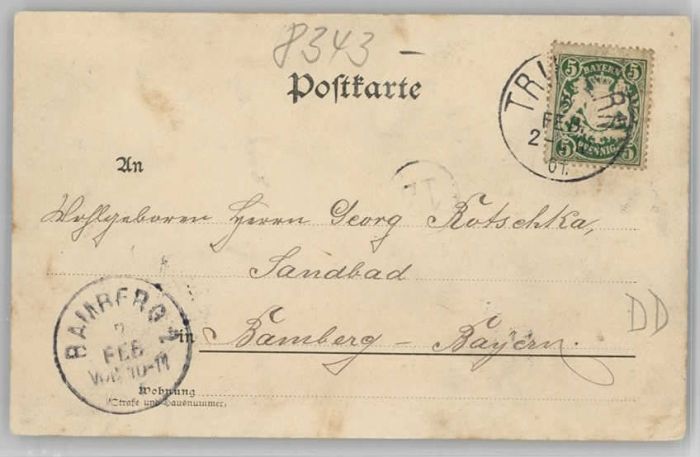 8343 –
Postkarte
BAYERN
5 5
PFENNIG
5 5
FEB.
2
01.
An
12
Wohlgeboren Herrn Georg Rotschka,
Sandbad
in Bamberg – Bayern.
DD
BAMBERG 2
FEB
VOR. 10-11
Wohnung
(Straße und Hausnummer)